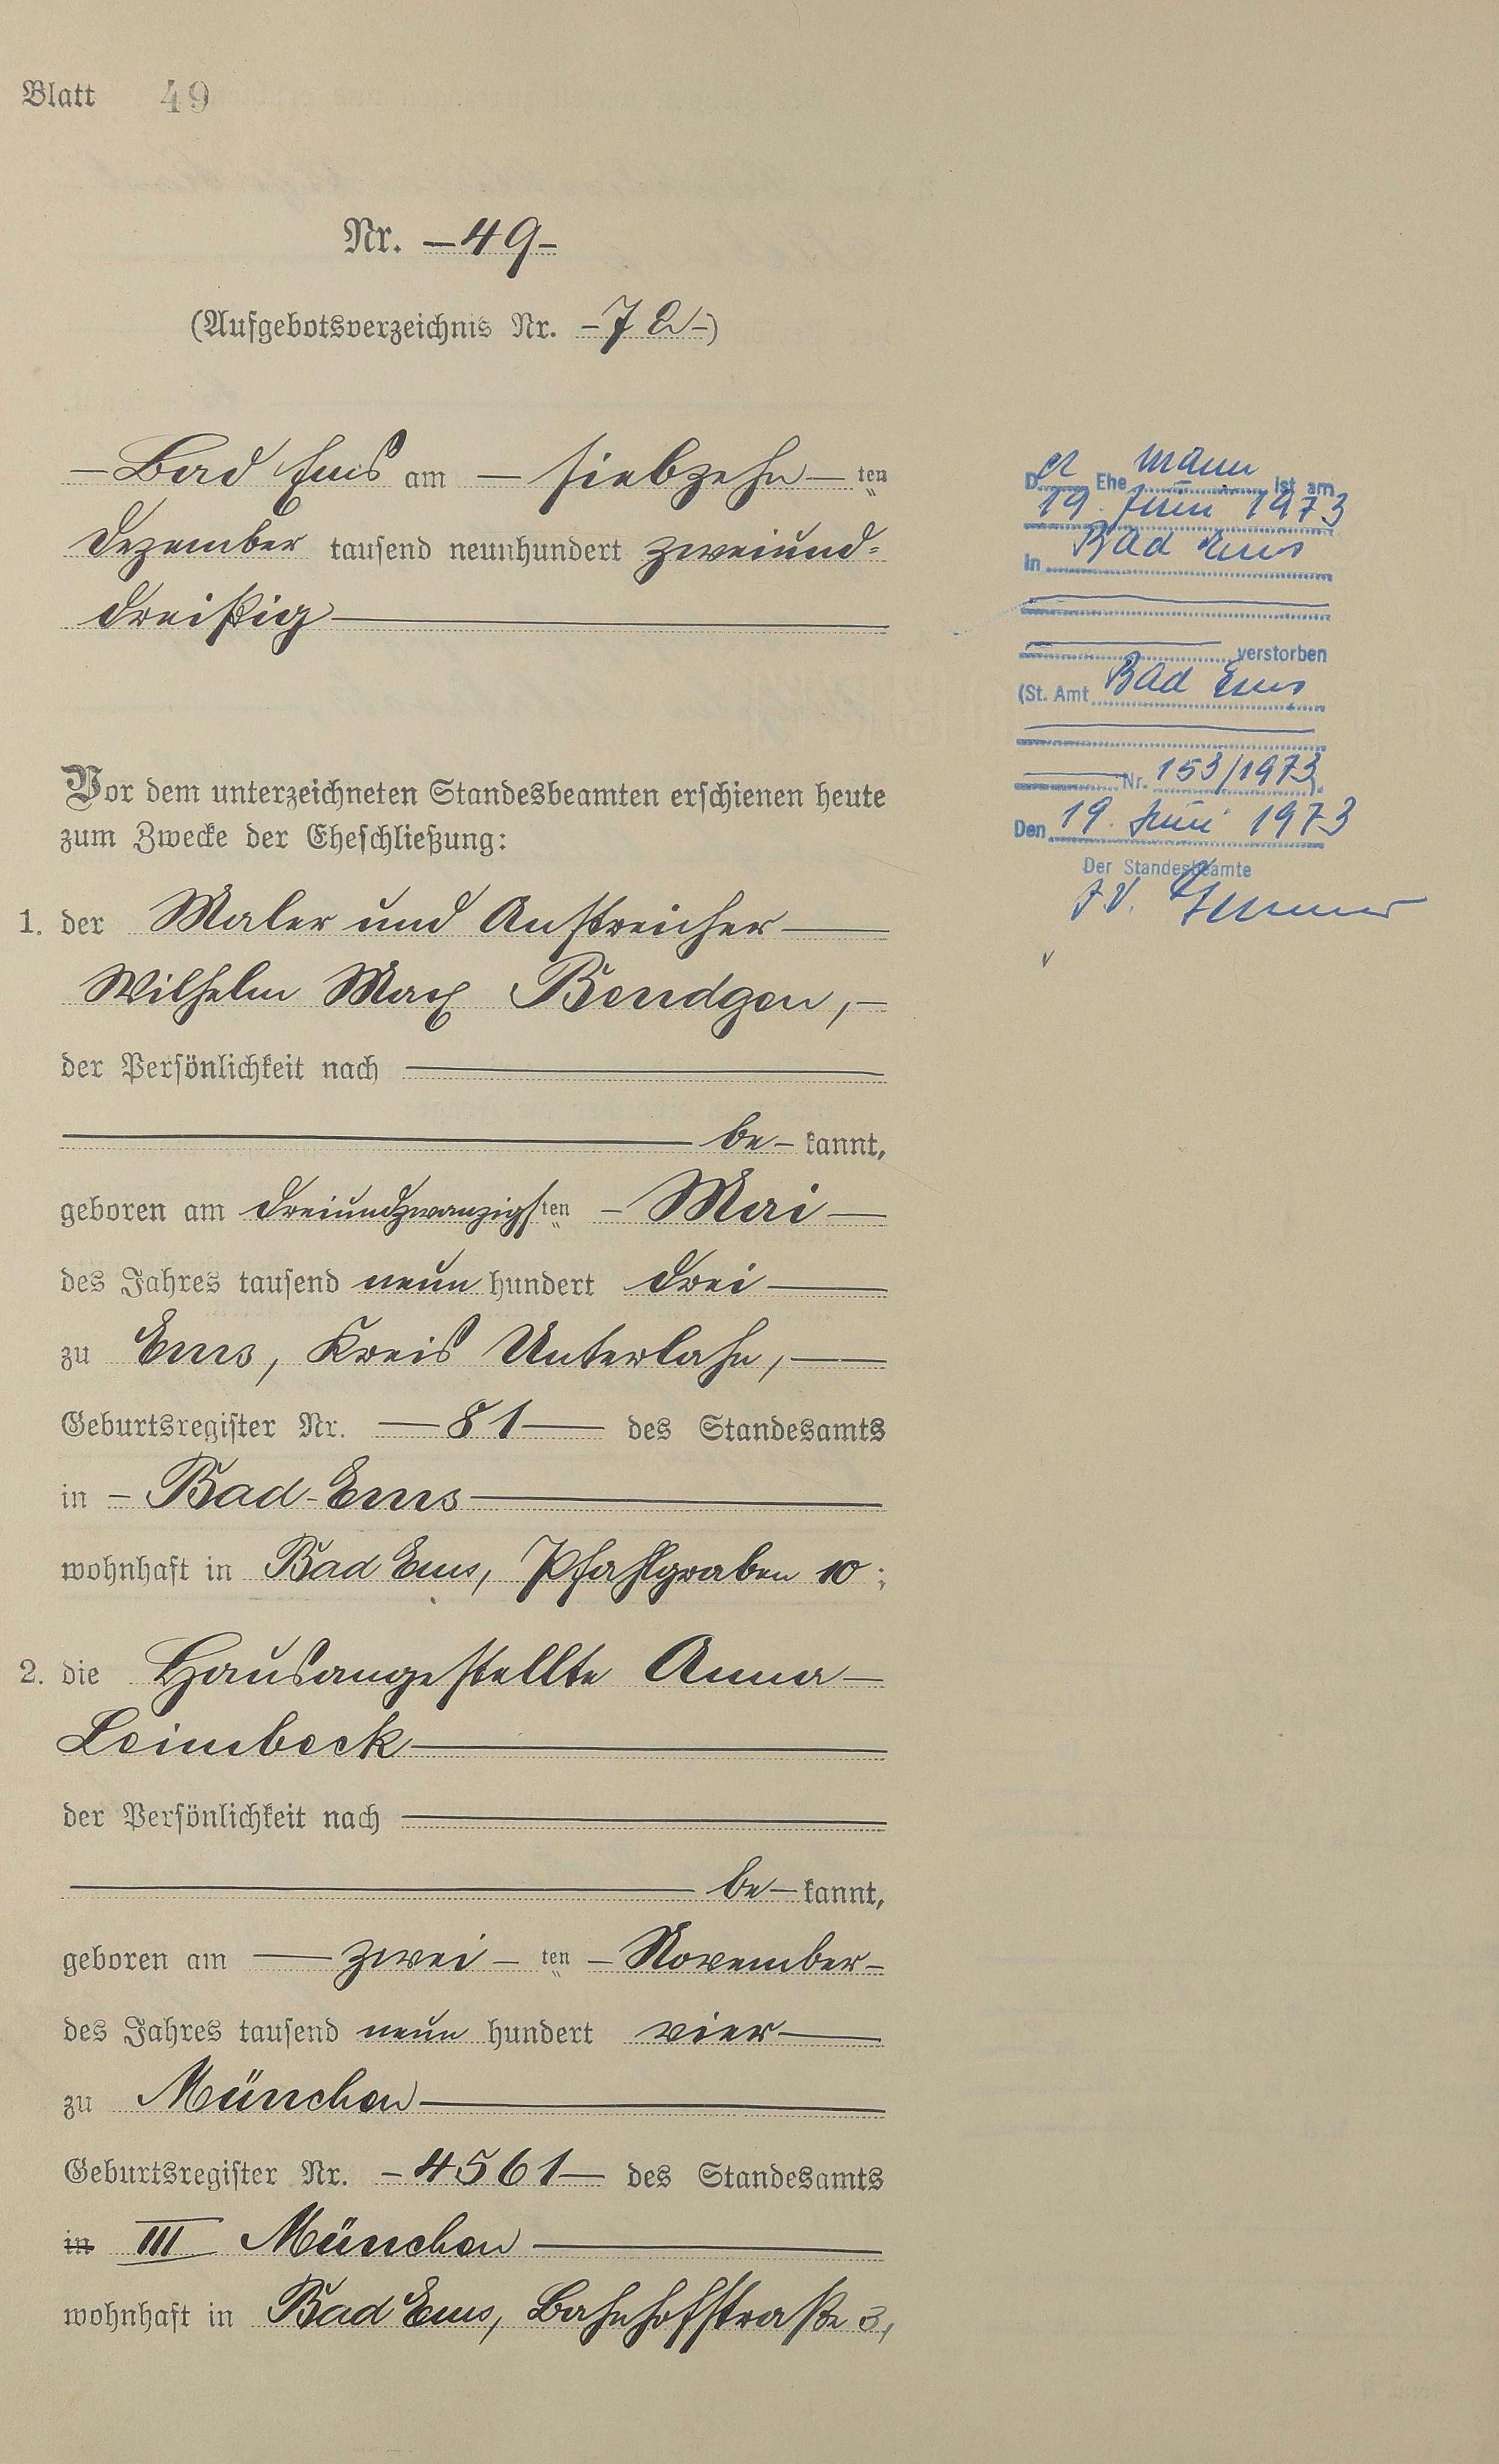 Blatt 49
Nr. – 49 –
(Aufgebotsverzeichnis Nr. – 72 –)
– Bad Ems am – siebzehn – ten
Dezember tausend neunhundert zweiund-
dreißig
Vor dem unterzeichneten Standesbeamten erschienen heute
zum Zwecke der Eheschließung:
1. der Maler und Anstreicher
Wilhelm Max Bendgen, –
der Persönlichkeit nach
be- kannt,
geboren am dreiundzwanzigsten – Mai –
des Jahres tausend neun hundert drei
zu Ems, Kreis Unterlahn,
Geburtsregister Nr. – 81 – des Standesamts
in – Bad-Ems
wohnhaft in Bad Ems, Pfahlgraben 10 ;
2. die Hausangestellte Anna –
Leimbeck
der Persönlichkeit nach
be- kannt,
geboren am – zwei – ten – November –
des Jahres tausend neun hundert vier
zu München
Geburtsregister Nr. – 4561 – des Standesamts
in III München
wohnhaft in Bad Ems, Bahnhofstraße 3,
Der Ehe mann ist am
19. Juni 1973
in Bad Ems
verstorben
(St. Amt Bad Ems
Nr. 153/1973).
Den 19. Juni 1973
Der Standesbeamte
I.V.